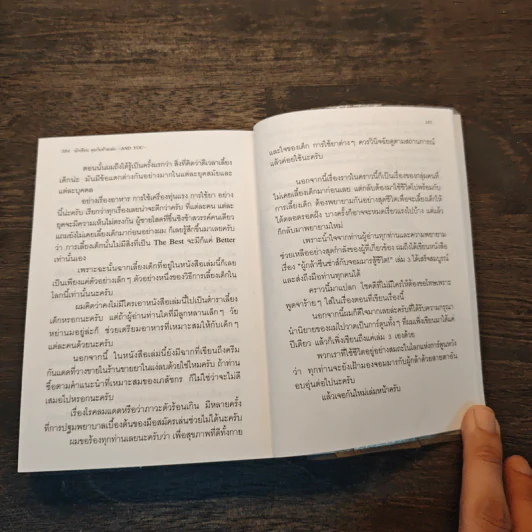 ตอนนั้นผมถึงได้รู้เป็นครั้งแรกว่า สิ่งที่คิดว่าดีเวลาเลี้ยง
เด็กน่ะ มันมีข้อแตกต่างกันอย่างมากในแต่ละยุคสมัยและ
แต่ละบุคคล
อย่างเรื่องอาหาร การใช้เครื่องทุ่นแรง การใช้ยา อย่าง
นี้น่ะครับ เรียกว่าทุกเรื่องเลยน่าจะดีกว่าครับ ที่แต่ละคน แต่ละ
ยุคจะมีความเห็นไม่ตรงกัน ผู้ชายโสดที่ขึ้นชิงช้าสวรรค์คนเดียว
แถมยังไม่เคยเลี้ยงเด็กมาก่อนอย่างผม ก็เลยรู้สึกขึ้นมาเลยครับ
ว่า การเลี้ยงเด็กนั้นไม่มีสิ่งที่เป็น The Best จะมีก็แค่ Better
เท่านั้นเอง
เพราะฉะนั้นการเลี้ยงเด็กที่อยู่ในหนังสือเล่มนี้ก็เลย
เป็นเพียงแค่ตัวอย่างเด็กๆ ตัวอย่างหนึ่งของวิธีการเลี้ยงเด็กใน
โลกนี้เท่านั้นนะครับ
ผมคิดว่าคงไม่มีใครเอาหนังสือเล่มนี้ไปเป็นตำราเลี้ยง
เด็กหรอกนะครับ แต่ถ้าผู้อ่านท่านใดที่มีลูกหลานเล็กๆ วัย
หย่านมอยู่ล่ะก็ ช่วยเตรียมอาหารที่เหมาะสมให้กับเด็กๆ
แต่ละคนด้วยนะครับ
นอกจากนี้ ในหนังสือเล่มนี้ยังมีฉากที่เขียนถึงครีม
กันแดดที่วางขายในร้านขายยาในแง่ลบด้วยใช่ไหมครับ ถ้าท่าน
ซื้อตามคำแนะนำที่เหมาะสมของเภสัชกร ก็ไม่ใช่ว่าจะไม่ดี
เสมอไปหรอกนะครับ
เรื่องโรคลมแดดหรือว่าภาวะตัวร้อนเกิน มีหลายครั้ง
ที่การปฐมพยาบาลเบื้องต้นของมือสมัครเล่นช่วยไม่ได้นะครับ
ผมขอร้องทุกท่านเลยนะครับว่า เพื่อสุขภาพที่ดีทั้งกาย
และใจของเด็ก การใช้ยาต่างๆ ควรวินิจฉัยดูตามสถานการณ์
แล้วค่อยใช้นะครับ
นอกจากนี้เรื่องราวในคราวนี้ก็เป็นเรื่องของกลุ่มคนที่
ไม่เคยเลี้ยงเด็กมาก่อนเลย แต่กลับต้องมาใช้ชีวิตไปพร้อมกับ
การเลี้ยงเด็ก ต้องพยายามกันอย่างสุดชีวิตเพื่อจะเลี้ยงเด็กให้
ได้ตลอดรอดฝั่ง บางครั้งก็อาจจะหมดเรี่ยวแรงไปบ้าง แต่แล้ว
ก็กลับมาพยายามใหม่
เพราะน้ำใจจากท่านผู้อ่านทุกท่านและความพยายาม
ช่วยเหลืออย่างสุดกำลังของผู้ที่เกี่ยวข้อง ผมถึงได้เขียนหนังสือ
และส่งถึงมือท่านทุกคนได้
คราวนี้มาแปลก โชคดีที่ไม่มีใครให้ต้องขอโทษเพราะ
พูดจาร้ายๆ ใส่ในเรื่องตอนที่เขียนเรื่องนี้
นอกจากนั้นผมก็ดีใจมากเลยล่ะครับที่ได้รับความกรุณา
นำนิยายของผมไปวาดเป็นการ์ตูนทั้งๆ ที่ผมเพิ่งเขียนมาได้แค่
ปีเดียว แล้วก็เพิ่งเขียนถึงแค่เล่ม 3 เองด้วย
พวกเราที่ใช้ชีวิตอยู่อย่างสมถะในโลกแห่งการ์ตูนหวัง
ว่า ทุกท่านจะยังเฝ้ามองจอมมารกับผู้กล้าด้วยสายตาอัน
อบอุ่นต่อไปนะครับ
แล้วเจอกันใหม่เล่มหน้าครับ